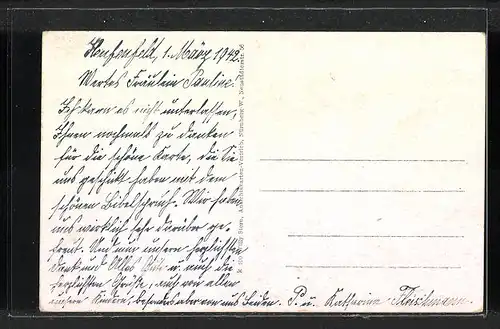 Henfenfeld, 1. März 1942.
Wertes Fräulein Pauline!
Ich kann es nicht unterlassen,
Ihnen nochmals zu danken
für die schöne Karte, die Sie
uns geschickt haben mit dem
schönen Bibelspruch. Wir haben
uns wirklich sehr darüber ge-
freut. Und nun unsern herzlichsten
Dank und Alles Gute u. auch die
herzlichsten Grüße, auch von allen
unsern Kindern, besonders aber von uns Beiden. P. u. Katharina Fleischmann.
Ansichtskarten-Vertrieb, Nürnberg-W.